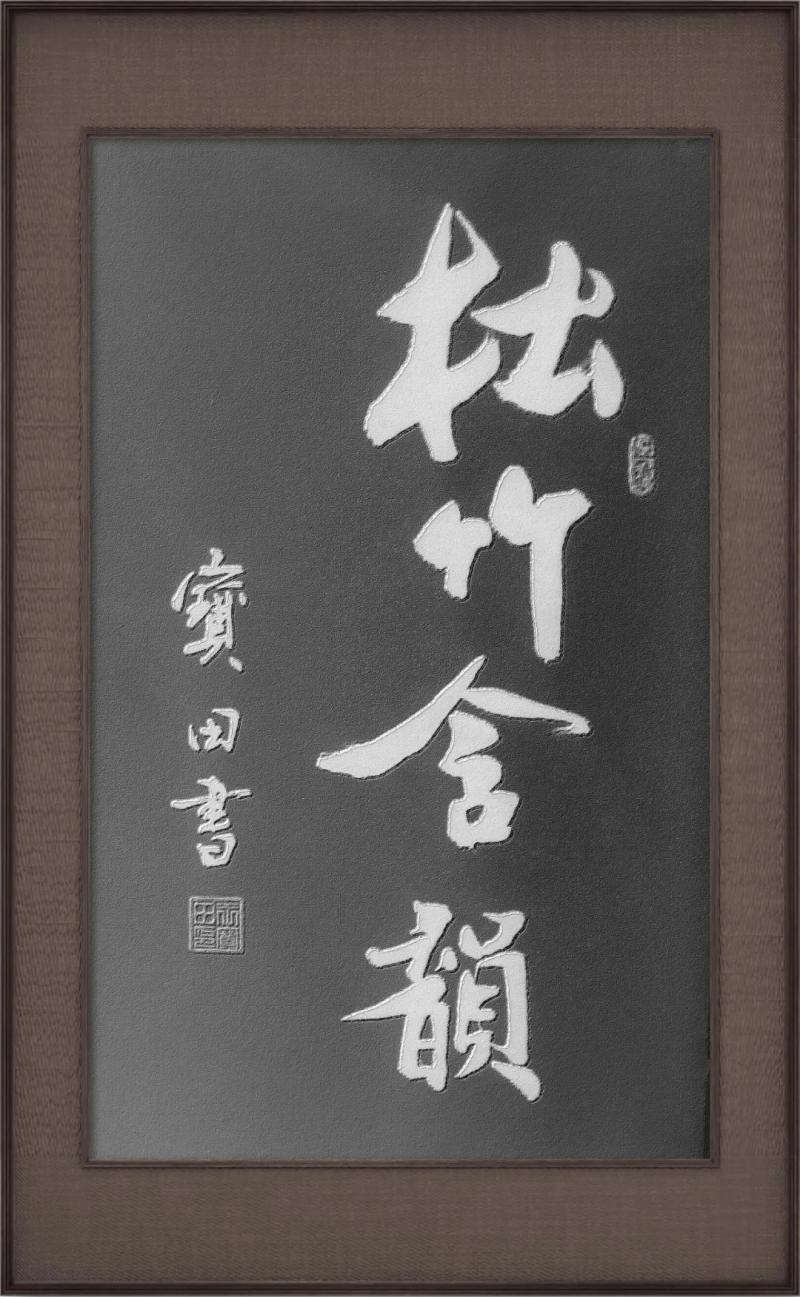 松竹含韻
寶田書